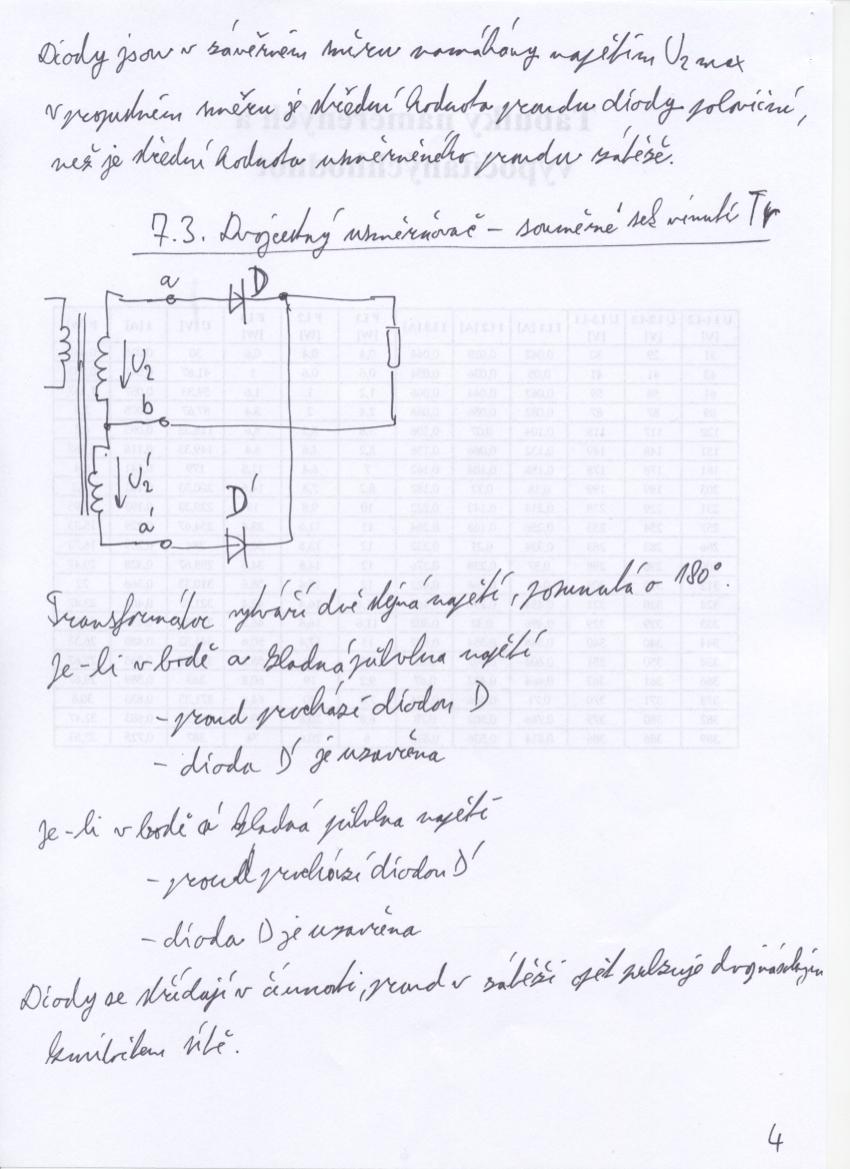 Diody jsou v závěrném směru namáhány napětím U2max
v propustném směru je střední hodnota proudu diody poloviční,
než je střední hodnota usměrněného proudu zátěže.
7.3. Dvojcestný usměrňovač – souměrné sek vinutí Tr
a D
U2
b
U2'
D'
a'
Transformátor vytváří dvě stejná napětí, posunutá o 180°.
Je-li v bodě a kladná půlvlna napětí
- proud prochází diodou D
- dioda D' je uzavřena
Je-li v bodě a' kladná půlvlna napětí
- proud prochází diodou D'
- dioda D je uzavřena
Diody se střídají v činnosti, proud v zátěži opět pulzuje dvojnásobným
kmitočtem sítě.
4